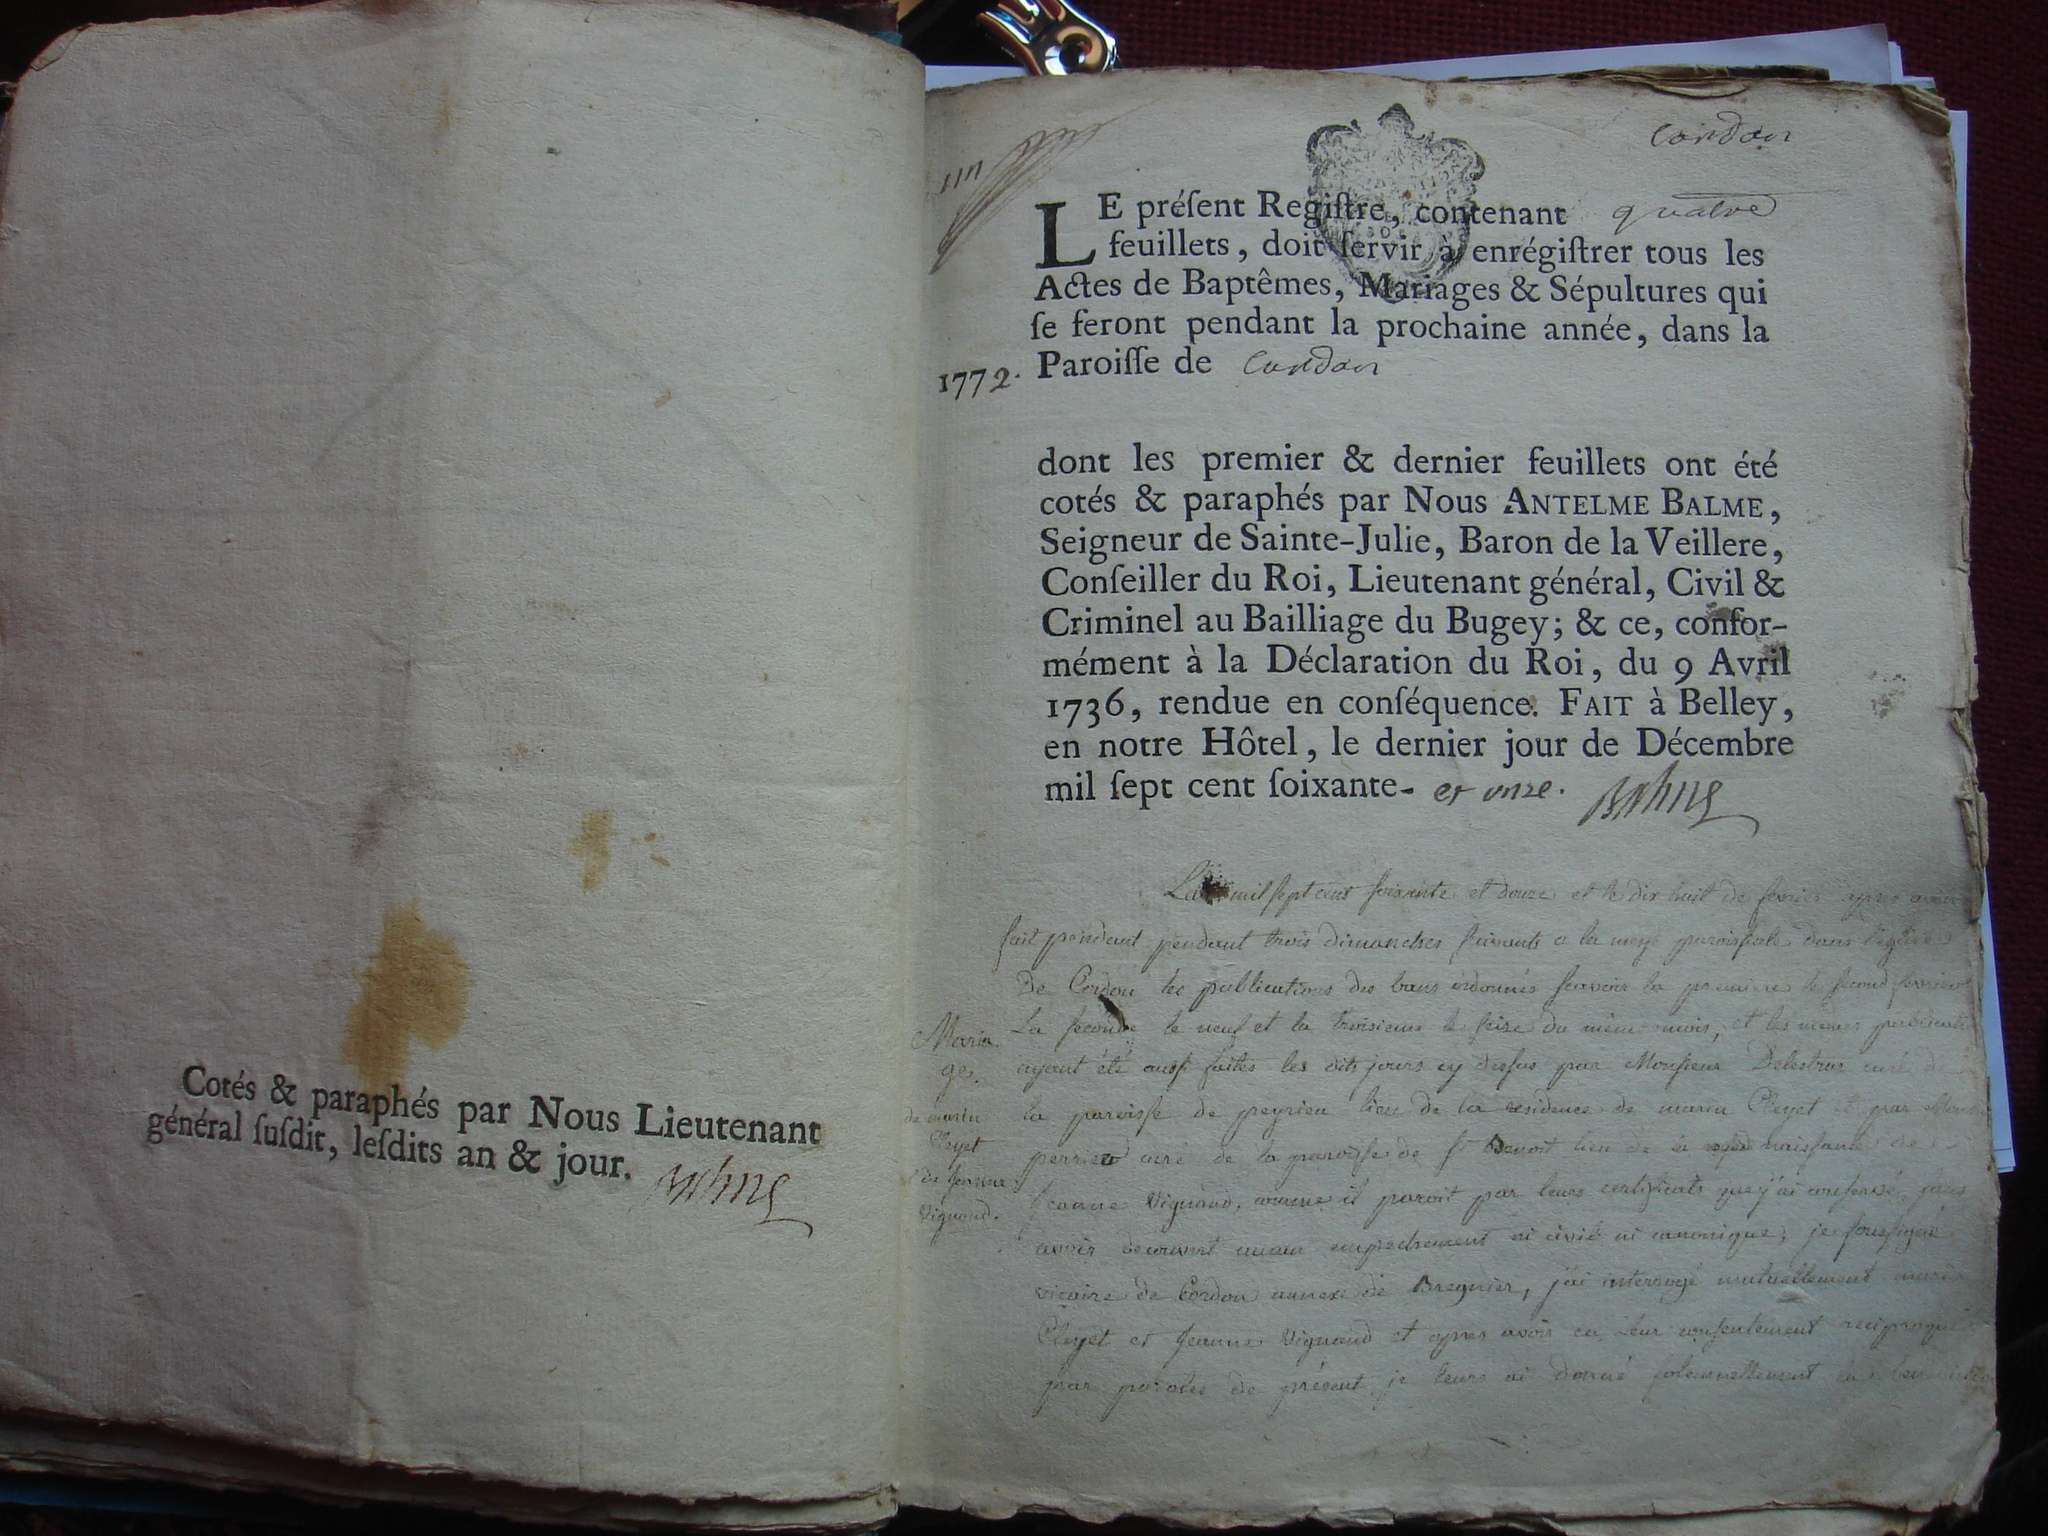 Cotés & paraphés par Nous Lieutenant
général ſuſdit, leſdits an & jour.
Cordon
LE préſent Regiſtre, contenant quatre
feuillets, doit ſervir à enrégiſtrer tous les
Actes de Baptêmes, Mariages & Sépultures qui
ſe feront pendant la prochaine année, dans la
1772. Paroiſſe de Cordon
dont les premier & dernier feuillets ont été
cotés & paraphés par Nous ANTELME BALME,
Seigneur de Sainte-Julie, Baron de la Veillere,
Conſeiller du Roi, Lieutenant général, Civil &
Criminel au Bailliage du Bugey; & ce, confor-
mément à la Déclaration du Roi, du 9 Avril
1736, rendue en conſéquence. FAIT à Belley,
en notre Hôtel, le dernier jour de Décembre
mil ſept cent ſoixante- et onze.
mil sept cent soixante et douze et le dix huit de fevrier apres avoir
fait pendant pendant trois dimanches suivants a la messe paroissiale dans l'eglise
De Cordon les publications des bans ordonnés scavoir la premiere le second fevrier
La seconde le neuf et la troisieme le seize du même mois, et les mêmes
ayant été aussi faites les dits jours cy dessus par Monsieur curé de
la paroisse de peyrieu lieu de la residence de marin Cleyet et par
perrier curé de la paroisse de st Benoit lieu de la naissance de
Jeanne Vignaud, comme il paroit par leurs certificats que j'ai conservé, sans
avoir decouvert aucun empechement ni civil ni canonique; je soussigné
vicaire de Cordon annexe de Bregnier, j'ai interrogé mutuellement marin
Cleyet et Jeanne Vignaud et apres avoir eu leur consentement reciproque
par paroles de présent, je leurs ai donné solemnellement la
Maria
ges
de marin
Cleyet
& de Jeanne
Vignaud.